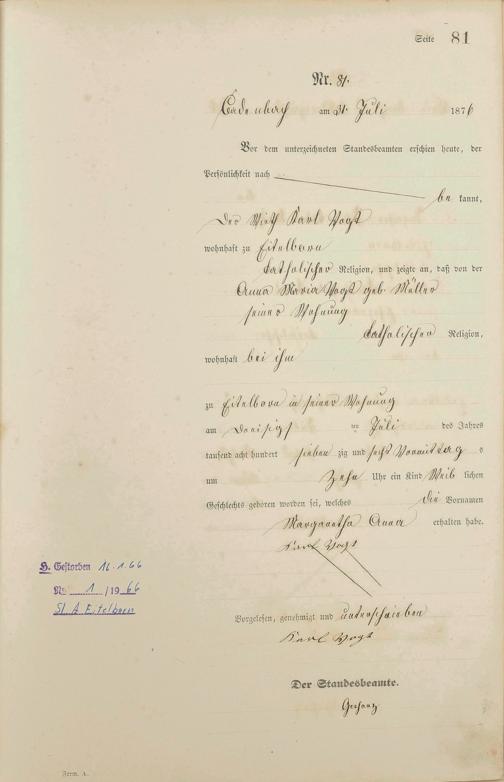 Seite 81
Nr. 81.
Cadenbach am 31. Juli 1876
Vor dem unterzeichneten Standesbeamten erschien heute, der
Persönlichkeit nach
be kannt,
der Wirth Karl Vogt
wohnhaft zu Eitelborn
katholischer Religion, und zeigte an, daß von der
Anna Maria Vogt geb. Müller
seiner Wohnung
katholischer Religion,
wohnhaft bei ihm
zu Eitelborn in seiner Wohnung
am Juli des Jahres
tausend acht hundert sieben zig und sechs Vormittag s
um Zehn Uhr ein Kind Weib lichen
Geschlechts geboren worden sei, welches die Vornamen
Margaretha Anna erhalten habe.
Karl Vogt
Vorgelesen, genehmigt und unterschrieben
Karl Vogt
Der Standesbeamte.
H. Gestorben 16.1.66
Nr. 1 / 19 66
St. A Eitelborn
Form. A.